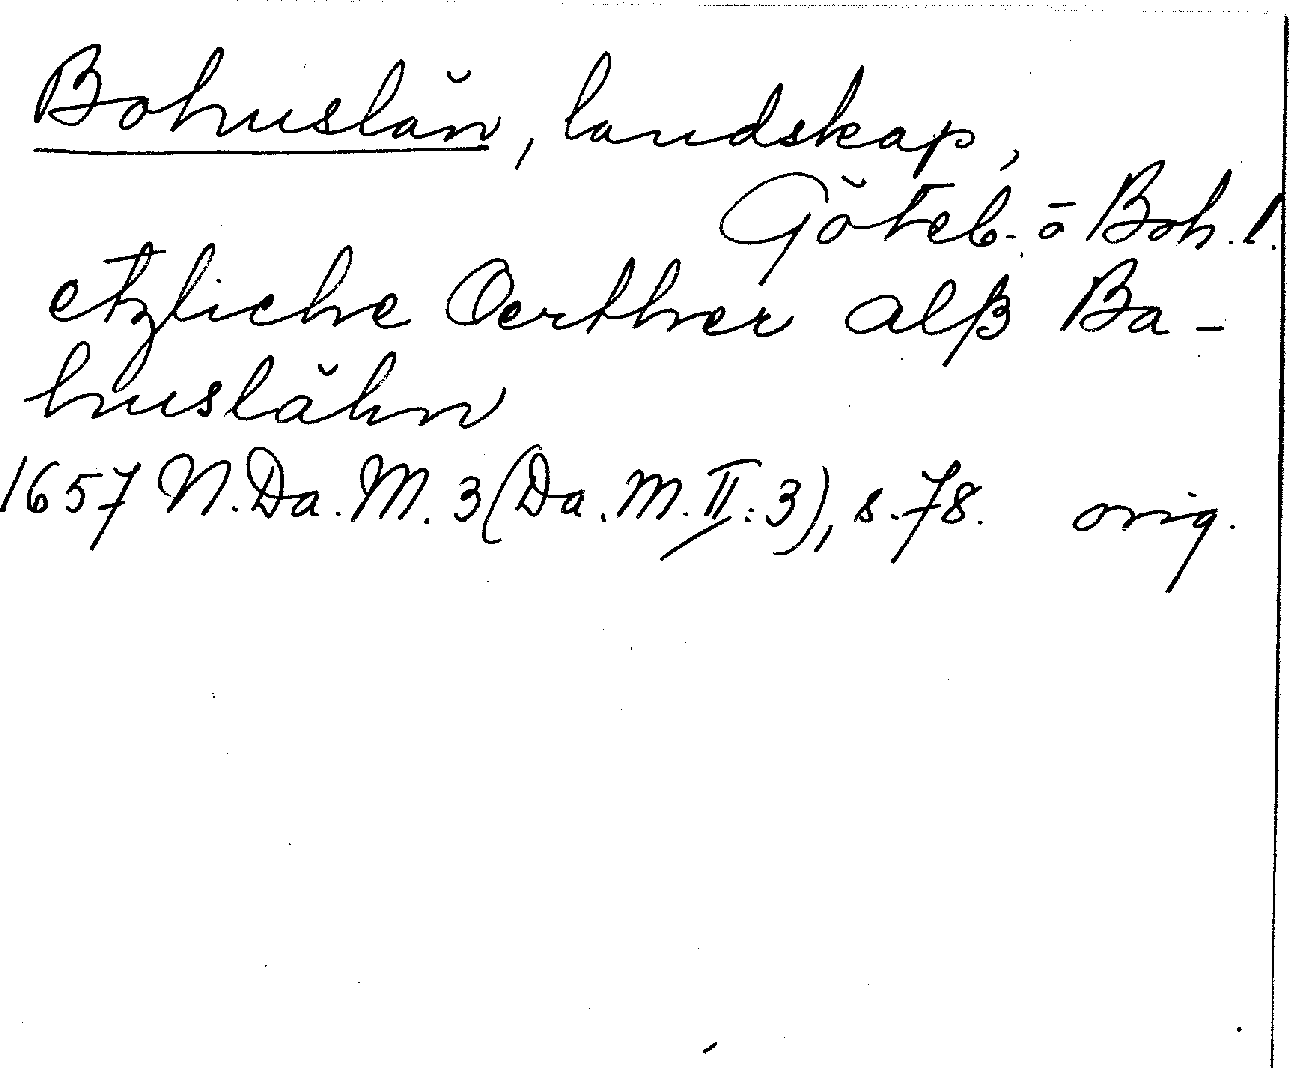 Bohuslän, landskap,
Göteb. o Boh. l.
etzliche Oerther alß Ba-
huslähn
1657 N. Da. M. 3 (Da. M. II: 3), s. 78. orig.